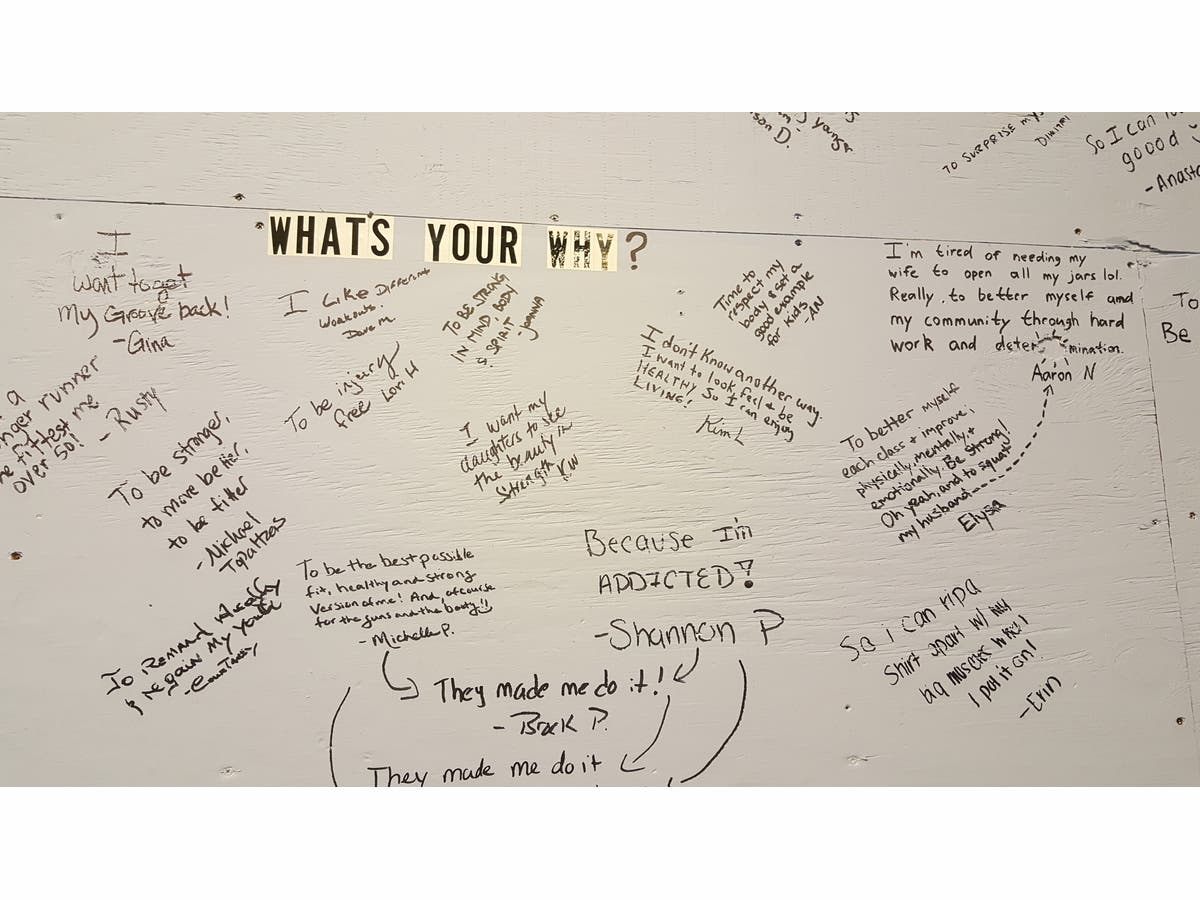 son D.
TO SURPRISE MY
DIMITRI
So I can
good
-Anasta
WHAT'S YOUR WHY?
I
want to get
My Groove back!
-Gina
I Like Different
Workouts.
Dave M.
TO BE STRONG
IN MIND BODY
& SPIRIT
Joanna
Time to
respect my
body & set a
good example
for kids.
-AN
I'm tired of needing my
wife to open all my jars lol.
Really, to better myself and
my community through hard
work and determination.
Aaron N
To
Be
a
nger runner
e fittest me
over 50!
- Rusty
To be injury
free Lori H
I don't know another way.
I want to look, feel & be
HEALTHY so I can enjoy
LIVING!
Kim L
To be stronger,
to move better,
to be fitter
-Michael
Topaltzas
I want my
daughters to see
the beauty in
strength KW
To better myself
each class + improve,
physically, mentally, +
emotionally. Be strong!
Oh yeah, and to squat
my husband
Elysa
To Remain Healthy
& regain My Youth
-Courtney
To be the best possible
fit, healthy and strong
version of me! And, of course
for the guns and the booty!
-Michelle P.
Because I'm
ADDICTED!
-Shannon P
So i can rip a
shirt apart w/ my
big muscles when
I put it on!
-Erin
They made me do it!
- Brek P.
They made me do it